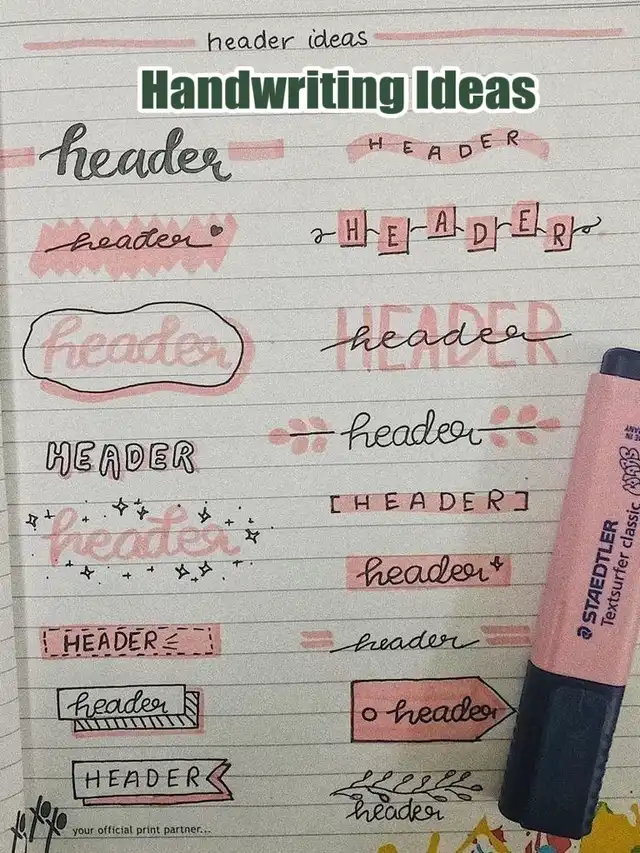 header ideas
Handwriting Ideas
header
HEADER
header
HEADER
header
HEADER
header
header
HEADER
header
[HEADER]
header
HEADER
header
header
header
HEADER
header
STAEDTLER
Textsurfer classic
XOXO
your official print partner...